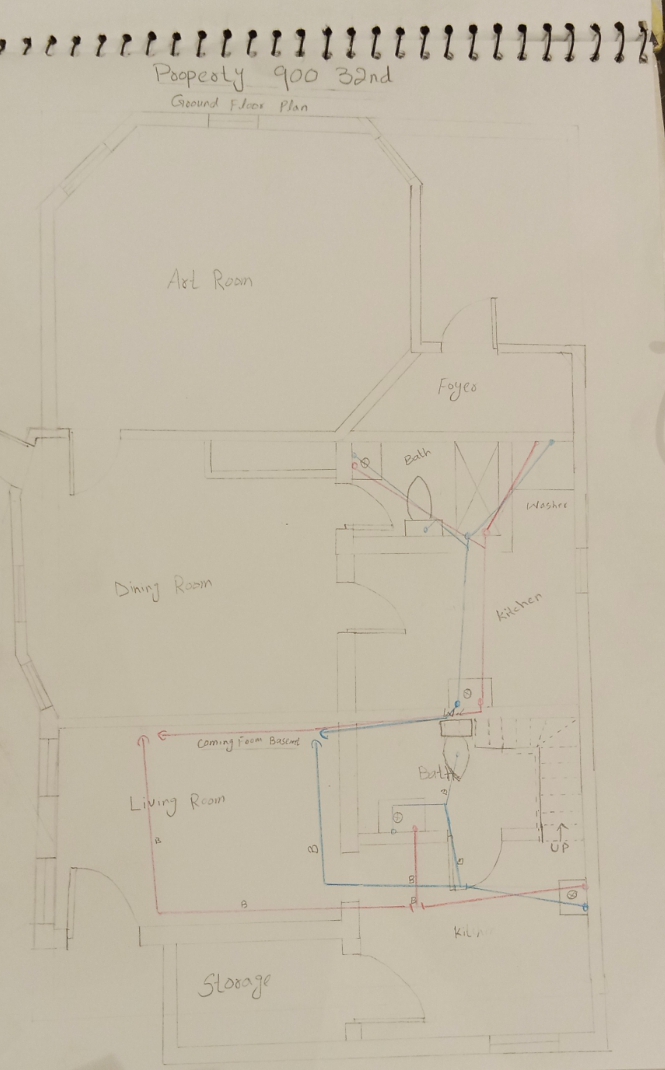 Property 900 32nd
Ground Floor Plan
Art Room
Foyer
Bath
Washer
Dining Room
Kitchen
Coming From Basemt
Bath
Living Room
B
B
B
UP
B
B
B
Storage